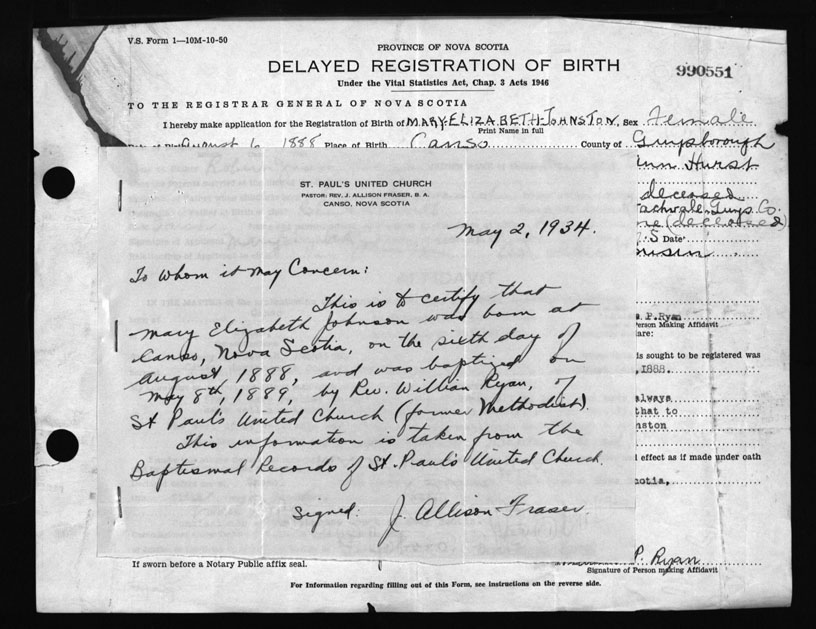 V.S. Form 1—10M-10-50
PROVINCE OF NOVA SCOTIA
DELAYED REGISTRATION OF BIRTH
990551
Under the Vital Statistics Act, Chap. 3 Acts 1946
TO THE REGISTRAR GENERAL OF NOVA SCOTIA
I hereby make application for the Registration of Birth of MARY-ELIZABETH-JOHNSTON. Sex Female
Print Name in full
August 6 1888 Place of Birth Canso County of Guysborough
Hurst
ST. PAUL'S UNITED CHURCH
PASTOR: REV. J. ALLISON FRASER, B. A.
CANSO, NOVA SCOTIA
deceased
Guys. Co.
(deceased)
May 2, 1934.
S Date
To whom it may Concern:
This is to certify that
Mary Elizabeth Johnson was born at
Canso, Nova Scotia, on the sixth day of
August 1888, and was baptized on
May 8th, 1889, by Rev. Willian Ryan, of
St Paul's United Church (former Methodist).
This information is taken from the
Baptismal Records of St. Paul's United Church.
Signed: J. Allison Fraser.
P. Ryan
Person Making Affidavit
is sought to be registered was
1888.
always
that to
nston
effect as if made under oath
otia,
P. Ryan
If sworn before a Notary Public affix seal.
Signature of Person making Affidavit
For Information regarding filling out of this Form, see instructions on the reverse side.